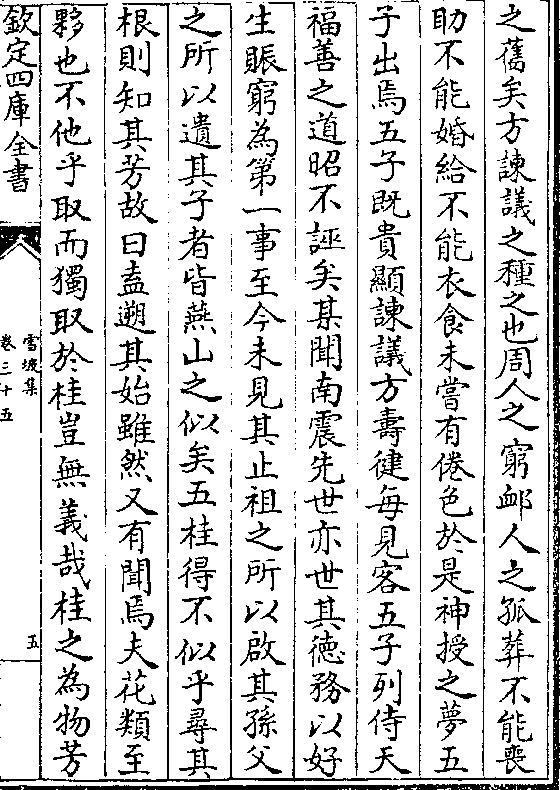 之舊矣方諫議之種之也周人之窮卹人之孤葬不能喪
助不能婚給不能衣食未嘗有倦色於是神授之夢五
子出焉五子既貴顯諫議方壽健每見客五子列侍天
福善之道昭不誣矣某聞南震先世亦世其德務以好
生賑窮為第一事至今未見其止祖之所以啟其孫父
之所以遺其子者皆燕山之似矣五桂得不似乎尋其
根則知其芳故曰盍遡其始雖然又有聞焉夫花類至
夥也不他乎取而獨取於桂豈無義哉桂之為物芳
欽定四庫全書
雪坡集
卷三十五
五